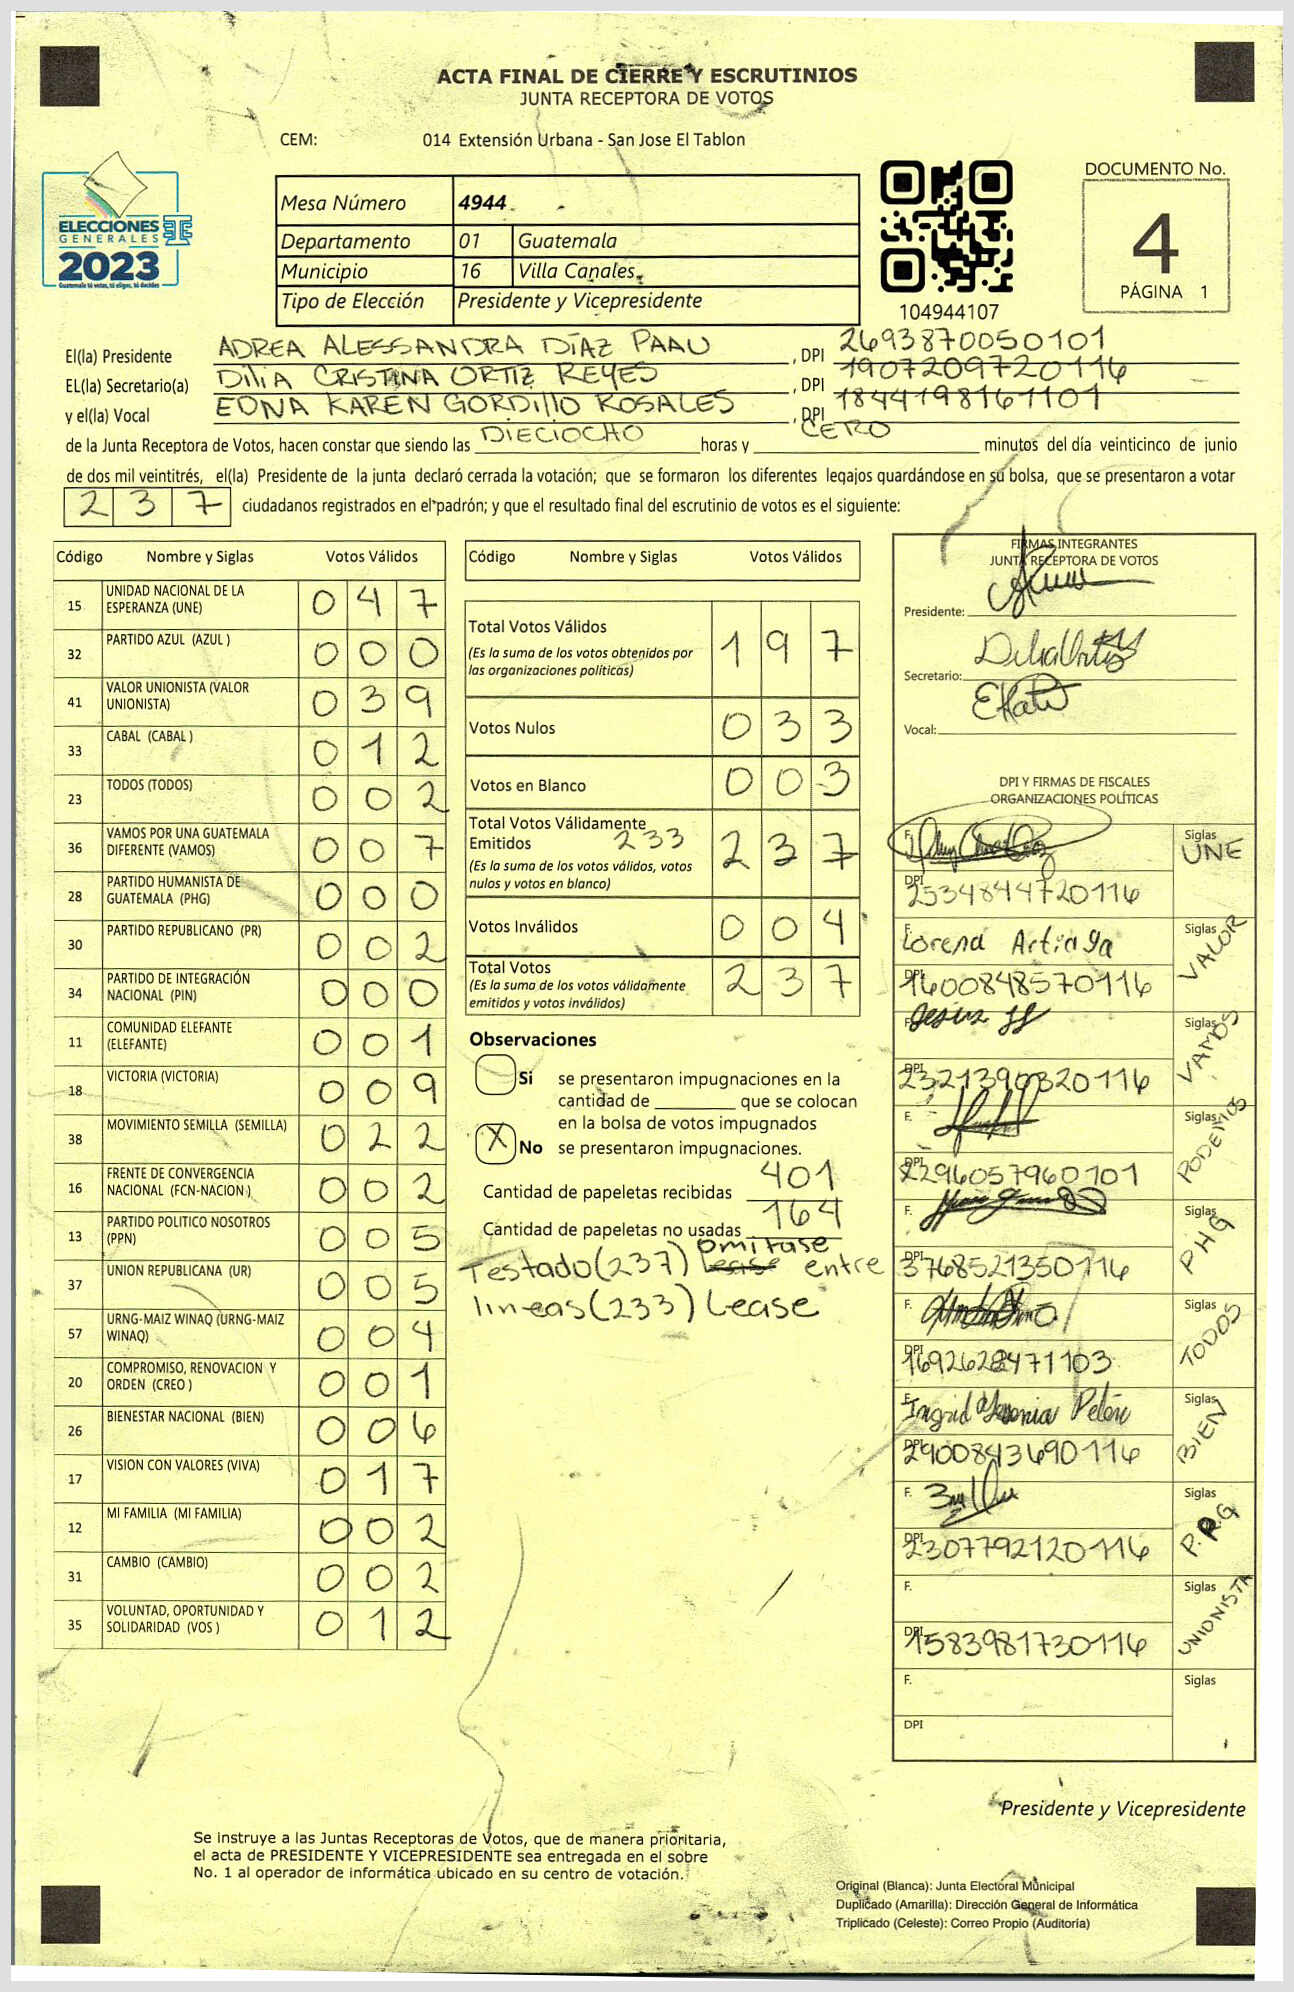 ACTA FINAL DE CIERRE Y ESCRUTINIOS
JUNTA RECEPTORA DE VOTOS
CEM: 014 Extensión Urbana - San Jose El Tablon
ELECCIONES
GENERALES
2023
Guatemala tú votas, tú eliges, tú decides
Mesa Número 4944
Departamento 01 Guatemala
Municipio 16 Villa Canales
Tipo de Elección Presidente y Vicepresidente
104944107
DOCUMENTO No.
4
PÁGINA 1
El(la) Presidente ADREA ALESSANDRA DÍAZ PAAU , DPI 2693870050101
EL(la) Secretario(a) DILIA CRISTINA ORTIZ REYES , DPI 1907209720116
y el(la) Vocal EDNA KAREN GORDILLO ROSALES , DPI 1844198161101
de la Junta Receptora de Votos, hacen constar que siendo las DIECIOCHO horas y CERO minutos del día veinticinco de junio
de dos mil veintitrés, el(la) Presidente de la junta declaró cerrada la votación; que se formaron los diferentes legajos quardándose en su bolsa, que se presentaron a votar
237 ciudadanos registrados en el padrón; y que el resultado final del escrutinio de votos es el siguiente:
Código Nombre y Siglas Votos Válidos
15 UNIDAD NACIONAL DE LA ESPERANZA (UNE) 047
32 PARTIDO AZUL (AZUL ) 000
41 VALOR UNIONISTA (VALOR UNIONISTA) 039
33 CABAL (CABAL ) 012
23 TODOS (TODOS) 002
36 VAMOS POR UNA GUATEMALA DIFERENTE (VAMOS) 007
28 PARTIDO HUMANISTA DE GUATEMALA (PHG) 000
30 PARTIDO REPUBLICANO (PR) 002
34 PARTIDO DE INTEGRACIÓN NACIONAL (PIN) 000
11 COMUNIDAD ELEFANTE (ELEFANTE) 001
18 VICTORIA (VICTORIA) 009
38 MOVIMIENTO SEMILLA (SEMILLA) 022
16 FRENTE DE CONVERGENCIA NACIONAL (FCN-NACION ) 002
13 PARTIDO POLITICO NOSOTROS (PPN) 005
37 UNION REPUBLICANA (UR) 005
57 URNG-MAIZ WINAQ (URNG-MAIZ WINAQ) 004
20 COMPROMISO, RENOVACION Y ORDEN (CREO ) 001
26 BIENESTAR NACIONAL (BIEN) 006
17 VISION CON VALORES (VIVA) 017
12 MI FAMILIA (MI FAMILIA) 002
31 CAMBIO (CAMBIO) 002
35 VOLUNTAD, OPORTUNIDAD Y SOLIDARIDAD (VOS ) 012
Código Nombre y Siglas Votos Válidos
Total Votos Válidos 197
(Es la suma de los votos obtenidos por
las organizaciones políticas)
Votos Nulos 033
Votos en Blanco 003
Total Votos Válidamente
Emitidos 233 237
(Es la suma de los votos válidos, votos
nulos y votos en blanco)
Votos Inválidos 004
Total Votos 237
(Es la suma de los votos válidamente
emitidos y votos inválidos)
Observaciones
Si se presentaron impugnaciones en la
cantidad de que se colocan
en la bolsa de votos impugnados
X No se presentaron impugnaciones.
Cantidad de papeletas recibidas 401
Cantidad de papeletas no usadas 164
omitase
Testado(237) lease entre
lineas(233) Lease
FIRMAS INTEGRANTES
JUNTA RECEPTORA DE VOTOS
Presidente:
Secretario:
Vocal:
DPI Y FIRMAS DE FISCALES
ORGANIZACIONES POLÍTICAS
F. Siglas UNE
DPI 2534844720116
F. Lorena Artiaga Siglas VALOR
DPI 1600848570116
F. Jesus Siglas VAMOS
DPI 2321390320116
F. Siglas PODEMOS
DPI 2296057960101
F. Siglas PHG
DPI 3768521350116
F. Siglas TODOS
DPI 1692628471103
F. Ingrid Yesenia Petén Siglas BIEN
DPI 2900843690116
F. Siglas P.R.G
DPI 2307792120116
F. Siglas UNIONISTA
DPI 1583981730116
F. Siglas
DPI
Presidente y Vicepresidente
Se instruye a las Juntas Receptoras de Votos, que de manera prioritaria,
el acta de PRESIDENTE Y VICEPRESIDENTE sea entregada en el sobre
No. 1 al operador de informática ubicado en su centro de votación.
Original (Blanca): Junta Electoral Municipal
Duplicado (Amarilla): Dirección General de Informática
Triplicado (Celeste): Correo Propio (Auditoría)